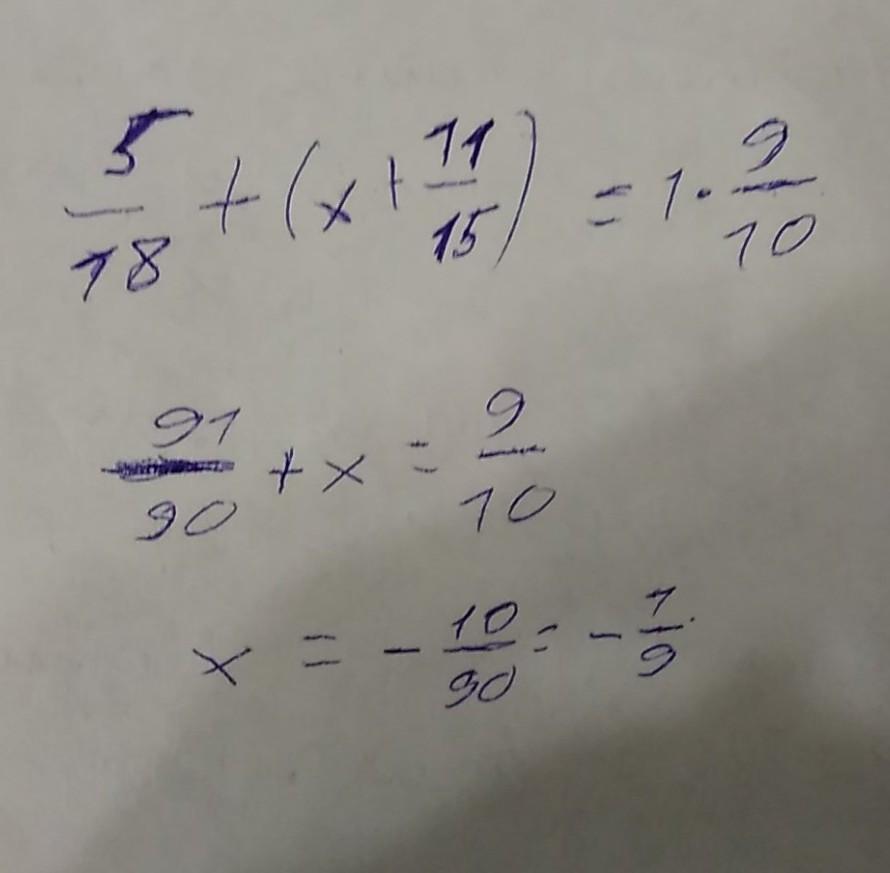 5/18 + (x + 11/15) = 1 · 9/10
91/90 + x = 9/10
x = - 10/90 = - 1/9